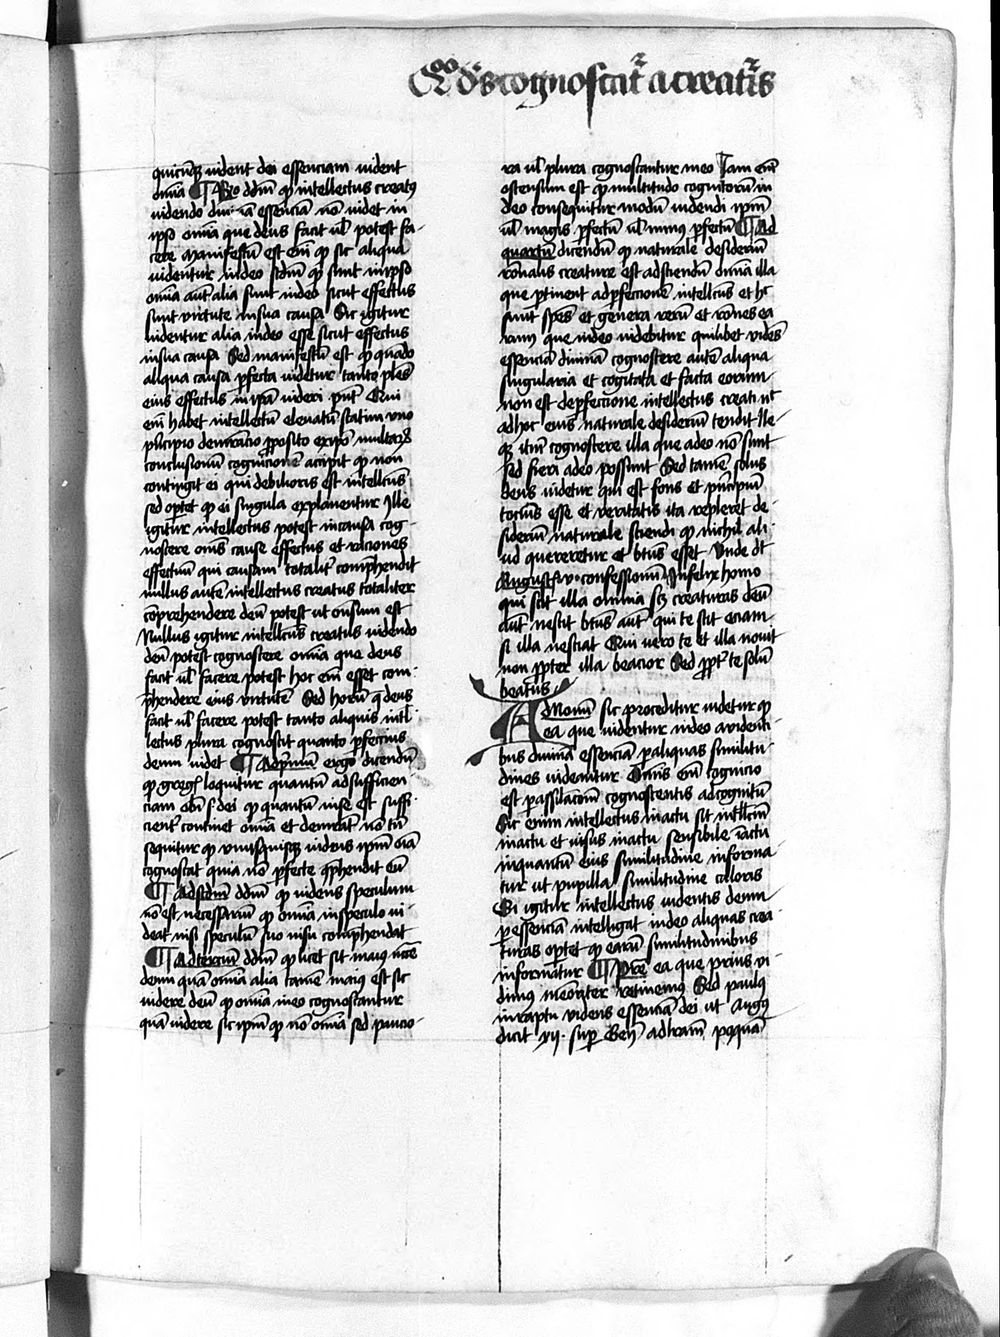 Qͦͦ dˢ cognoscat̃ a creat̃is
quicūqꝫ vident dei essenciam vident
omīa ¶ Rͦo ddm̄ qꝙ intellectus creatꝰ
videndo diuinā essenciā nō videt in
ipso omīa que deus facit ul̄ potest fa-
cere Manifestū est em̄ qꝙ sic aliqua
videntur in deo scdm̄ qꝙ sunt in ipso
omīa aūt alia sunt in deo sicut effectus
sunt virtute in sua causa Sic igitur
videntur alia in deo esse sicut effectus
in sua causa Sed manifestū est qꝙ quādo
aliqua causa ꝑfecta videtur tanto ples̄
eius effectus in ip̄a videri pn̄t Qui
em̄ habet intellectū eleuatū statim vno
pͥncipio demr̄atiō ꝓposito ex ipͦ multaꝝ
conclusionū cognicionē accipit qꝙ non
contingit ei qui debilioris est intellcūs
sed oꝑtet qꝙ ei singula explanentur Ille
igitur intellectus potest in causa cog-
noscere om̄s cause effectus et raciones
effectuū qui causam totalit̄ comp̄hendit
nullus autē intellectus creatus totaliter
cōprehendere deū potest ut on̄sum est
Nullus igitur intellcūs creatus videndo
deū potest cognoscere omīa que deus
facit ul̄ facere potest hoc em̄ esset com-
p̄hendere eius virtutē Sed horū q̄ deus
facit ul̄ facere potest tanto aliquis intel-
lectus plura cognoscit quanto ꝑfectius
deum videt ¶ Ad pͥmū ergo dicendū
qꝙ greḡ loquitur quantū ad sufficien-
ciam obͥi sꝫ dei qꝙ quantū in se est suffi-
cient̄ continet omīa et demr̄at nō tn̄
sequitur qꝙ vnusquisqꝫ videns ip̄m oīa
cognoscat quia nō ꝑfecte cp̄hendit eū
¶ Ad scdm̄ ddm̄ qꝙ videns speculum
nō est necessariū qꝙ omīa in speculo vi-
deat nisi speculū suo visu comp̄hendat
¶ Ad terciū ddm̄ qꝙ licet sit maiꝰ videre
deum quā omīa alia tamē maiꝰ est sic
videre deū qꝙ omīa in eo cognoscantur
quā videre sic ip̄m qꝙ nō omīa sed paucio-
ra ul̄ plura cognoscantur in eo Iam em̄
ostensum est qꝙ multitudo cognitorū in
deo consequitur modū videndi ip̄m
ul̄ magis ꝑfectū ul̄ minꝰ ꝑfectū ¶ Ad
quartū dicendū qꝙ naturale desideriū
rōnalis creature est ad sciendū omīa illa
que ꝑtinent ad ꝑfectionē intellcūs et hͨ
sunt spēs et genera rerū et rōnes ea
rum que in deo videbitur quilibet vidēs
essenciā diuinā cognoscere autē aliqua
singularia et cogitata et facta eorum
non est de ꝑfectione intellectus creati nͨ
ad hoc eius naturale desideriū tendit Ne
qꝫ itͬū cognoscere illa que adeo nō sunt
sed fieri adeo possunt Sed tamē solus
deus videtur qui est fons et pͥncipiū
tocius esse et veritatis ita repleret de-
siderium naturale sciendi qꝙ nichil ali-
ud quereretur et btūs esset Vnde dt̄
Augusͭ v · confessionū Infelix homo
qui scit illa omnia scꝫ creaturas deū
aūt nescit btūs aūt qui te scit eciam
si illa nesciat Qui vero te et illa nouit
non ꝓpter illa beacior Sed ꝓpt̄ te solū
beatus
Ad Nonū sic proceditur videtur qꝙ
ea que videntur in deo a videnti-
bus diuinā essenciā ꝑ aliquas similitu-
dines videantur Omnis em̄ cognicio
est ꝑ assilacōm̄ cognoscentis ad cognitū
Sic enim intellectus in actu fit intellcm̄
in actu et visus in actu sensibile ī actu
inquantū eius similitudine informa-
tur ut pupilla similitudine coloris
Si igitur intellectus videntis deum
ꝑ essenciā intelligat in deo aliquas crea-
turas oꝑtet qꝙ earū similitudinibus
informatur ¶ Pͬe ea que prius vi-
dimꝰ memoriter retinemus Sed paulꝰ
in raptu videns essenciā dei ut Augꝰ
dicit xij · suꝑ Geñ ad lram̄ postquā